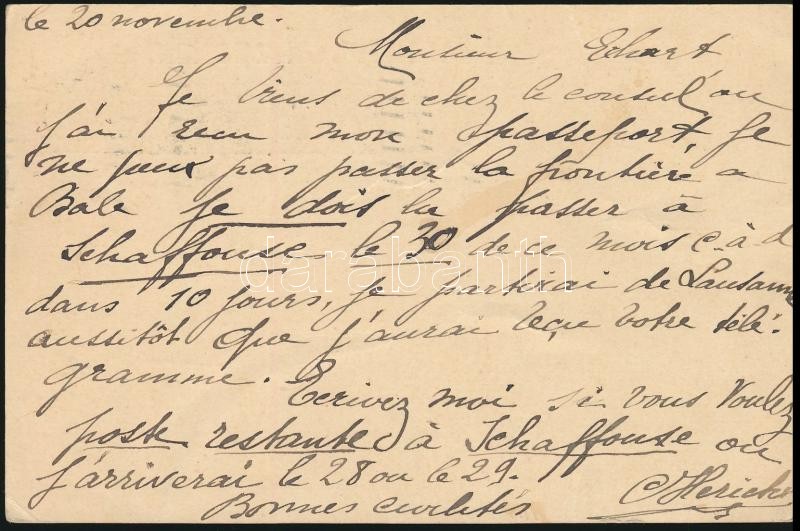 le 20 novembre.
Monsieur Echart
Je viens de chez le consul ou
j'ai recu mon passeport, je
ne peux pas passer la frontière a
Bale je dois la passer à
Schaffouse le 30 de ce mois c.à.d
dans 10 jours, je partirai de Lausanne
aussitôt que j'aurai reçu votre télé-
gramme. Ecrivez moi si vous voulez
poste restante à Schaffouse ou
j'arriverai le 28 ou le 29.
Bonnes civilités
darabanth